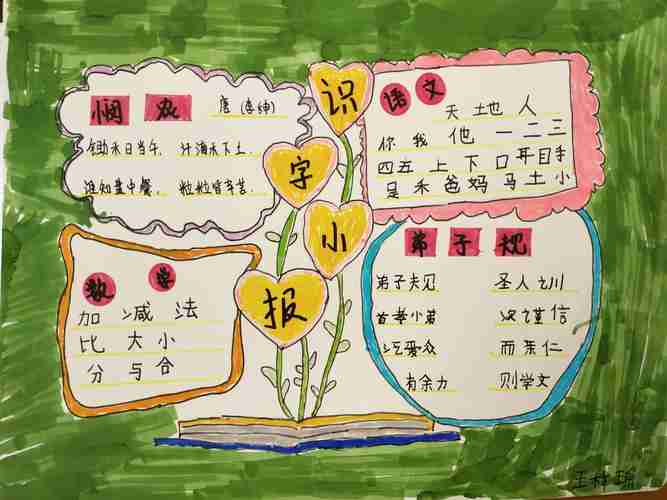 识
字
小
报
悯农 唐(李绅)
锄禾日当午, 汗滴禾下土.
谁知盘中餐, 粒粒皆辛苦.
语文 天地人
你我他一二三
四五上下口耳目手
足禾爸妈马土小
数学
加减法
比大小
分与合
弟子规
弟子夫见 圣人训
首孝小弟 次谨信
泛爱众 而亲仁
有余力 则学文
王梓